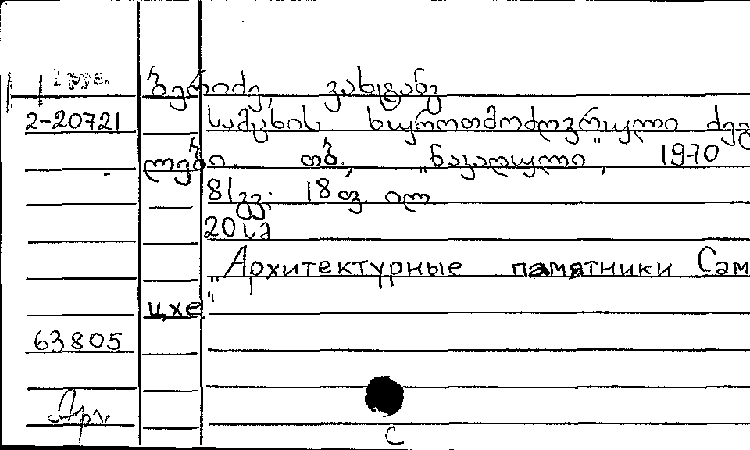 1 груз. ბერიძე, ვახტანგ
2-20721 სამცხის ხუროთმოძღვრული ძეგ
ლები. თბ., „ნაკადული", 1970
81 გვ. 18 ფ. ილ.
20 სმ
„Архитектурные памятники Сам
цхе"
63805
Арх.
С